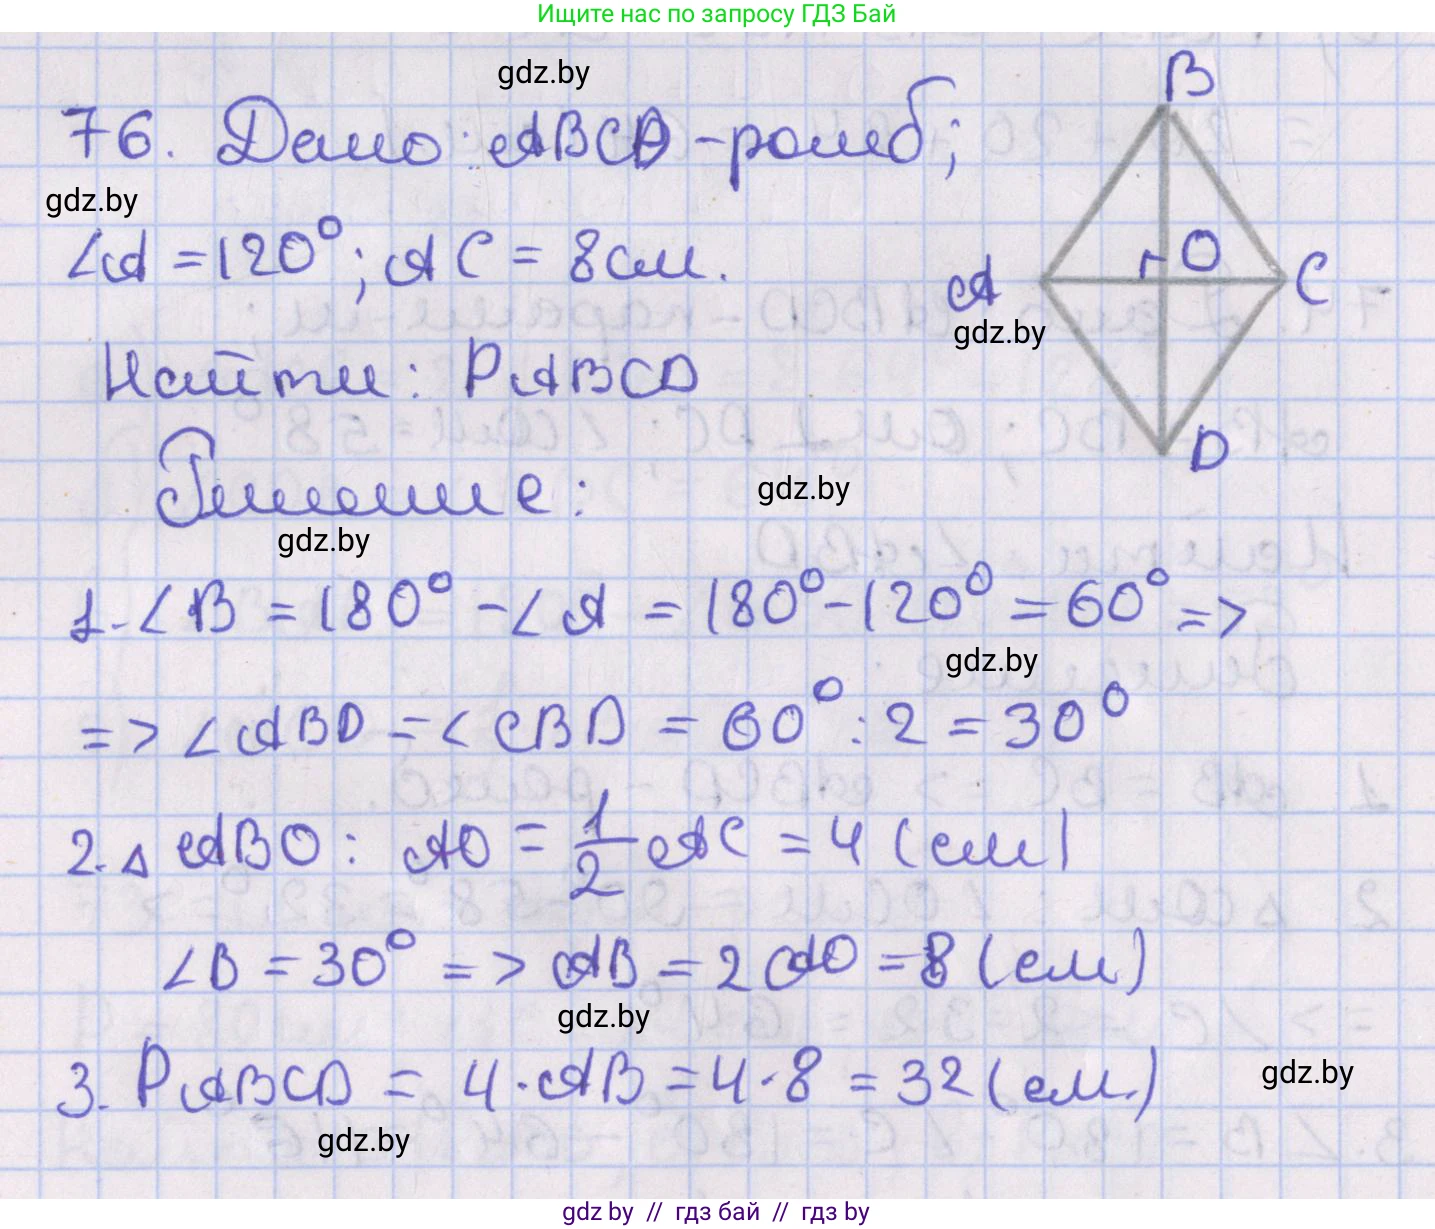 Ищите нас по запросу ГДЗ Бай
gdz.by
76. Дано: ABCD - ромб;
gdz.by
∠A = 120°; AC = 8см.
B
O
A
C
D
gdz.by
Найти: PABCD
Решение:
gdz.by
gdz.by
1. ∠B = 180° - ∠A = 180° - 120° = 60° =>
gdz.by
=> ∠ABD = ∠CBD = 60° : 2 = 30°
2. △ ABO: AO = 1/2 AC = 4 (см)
∠B = 30° => AB = 2AO = 8 (см)
gdz.by
3. PABCD = 4·AB = 4·8 = 32 (см.)
gdz.by
gdz.by
gdz by // гдз бай // гдз by